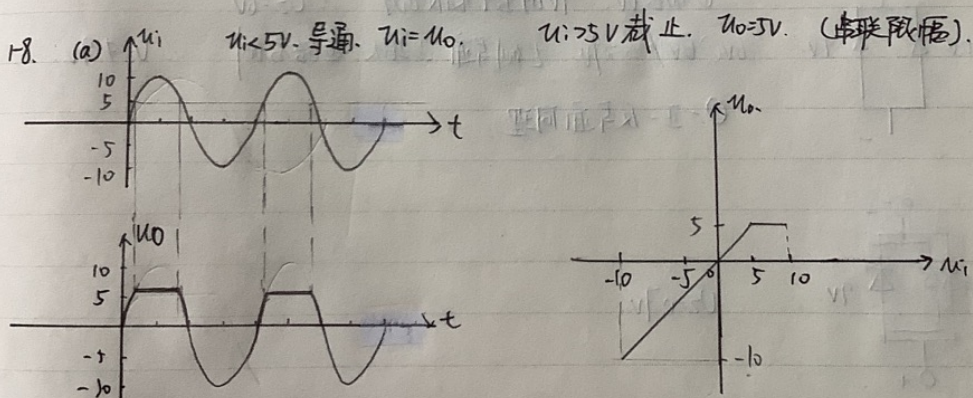 1-8. (a) ui ui<5V. 导通. ui=uo. ui>5V截止. uo=5V. (串联限幅).
10
5
-5
-10
t
uo
10
5
-5
-10
t
uo.
5
-10 -5 0 5 10 ui
-10